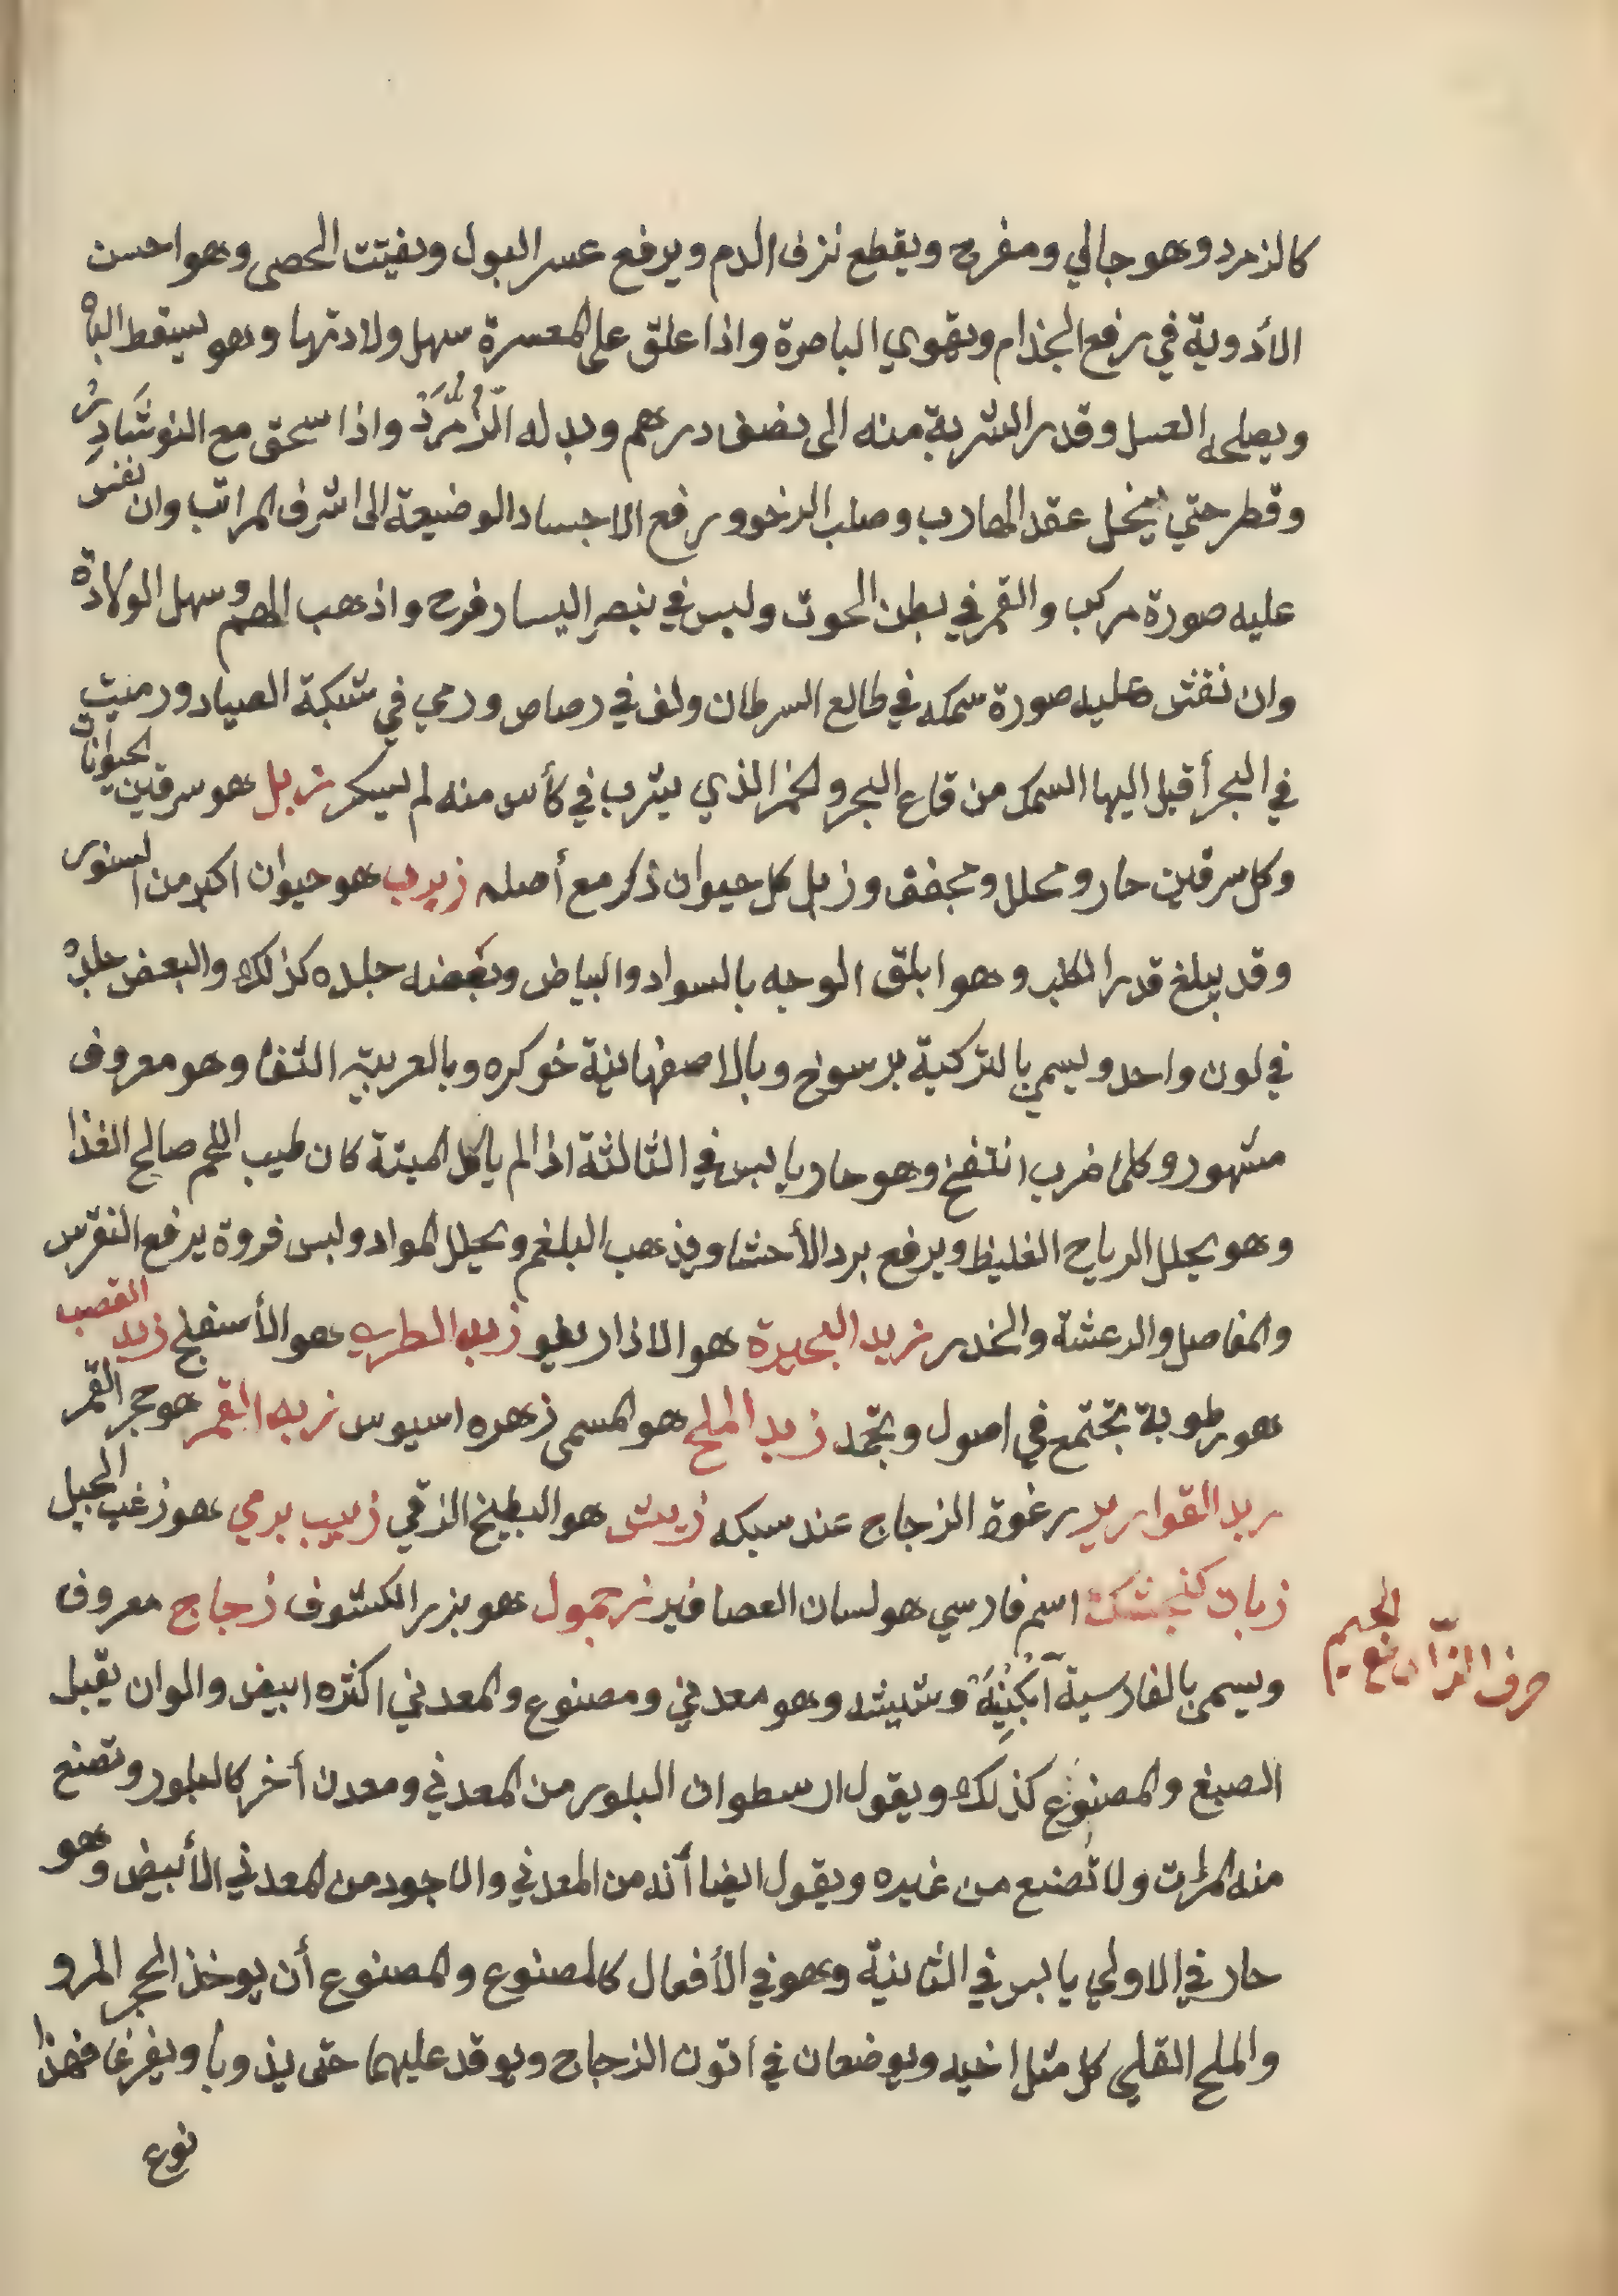 كالزمرد وهو جالي ومفرح ويقطع نزف الدم ويرفع عسر البول ويفتت الحصى وهو احسن
الأدوية في رفع الجذام ويقوي الباصرة واذا علق على المعسرة سهل ولادتها وهو يسقط الباه
ويصلحه العسل وقدر الشربة منه الى نصف درهم وبدله الزُّمُرَّدْ واذا سحق مع النوشَادِر
وقطر حتي ينحل عقد الهارب وصلب الرخو ورفع الاجساد الوضيعة الى اشرف المراتب وان نقش
عليه صورة مركب والقمر في بطن الحوت ولبس في بنصر اليسار فرح واذهب الهم وسهل الولادة
وان نقش عليه صورة سمكه في طالع السرطان ولف في رصاص ورمي في شبكة الصياد ورميت
في البحر أقبل اليها السمك من قاع البحر والخمر الذي يشرب في كأس منه لم يسكر زبل هو سرقين الحيوانات
وكل سرقين حار ومحلل ومجفف وزبل كل حيوان ذكر مع أصله زبرب هو حيوان اكبر من السنور
وقد يبلغ قدر الكلب وهو ابلق الوجه بالسواد والبياض وبعضه جلده كذلك والبعض جلده
في لون واحد ويسمي بالتركية برسوخ وبالاصفهانية خوكره وبالعربية التفا وهو معروف
مشهور وكلما ضرب انتفخ وهو حار يابس في الثالثة اذا لم ياكل الميتة كان طيب اللحم صالح الغذا
وهو يحلل الرياح الغليظ ويرفع برد الأحشا ويذهب البلغم ويحلل المواد ولبس فروة يرفع النقرس
والمفاصل والرعشة والخدر زبد البحيرة هو الاذاريقيو زبد الطريه هو الأسفلج زبد القصب
هو رطوبة تجتمع في اصول وتجمد زبد الملح هو المسمى زهره اسيوس زبد القمر هو حجر القمر
ربد القوارير رغوة الزجاج عند سبكه زبش هو البطيخ الزقي زبيب برمي هو زغيب الجبل
زبان كنجشك اسم فارسي هو لسان العصافير زجمول هو بزر الكشوف زجاج معروف
حرف الزاء مع الجيم
ويسمى بالفارسية آبْكِنِيَهْ وشيشه وهو معدني ومصنوع والمعدني اكثره ابيض والوان يقبل
الصبغ والمصنوع كذلك ويقول ارسطو ان البلور من المعدني ومعدن أخر كالبلور وتصنع
منه المرآت ولا تُصنع من غيره ويقول ايضا أنه من المعدني والاجود من المعدني الأبيض وهو
حار في الاولي يابس في الثانية وهو في الأفعال كالمصنوع والمصنوع أن يوخذ الحجر المرو
والملح القلي كل مثل اخيه ويوضعان في اتون الزجاج ويوقد عليهما حتى يذوبا ويفرغا فهذا
نوع